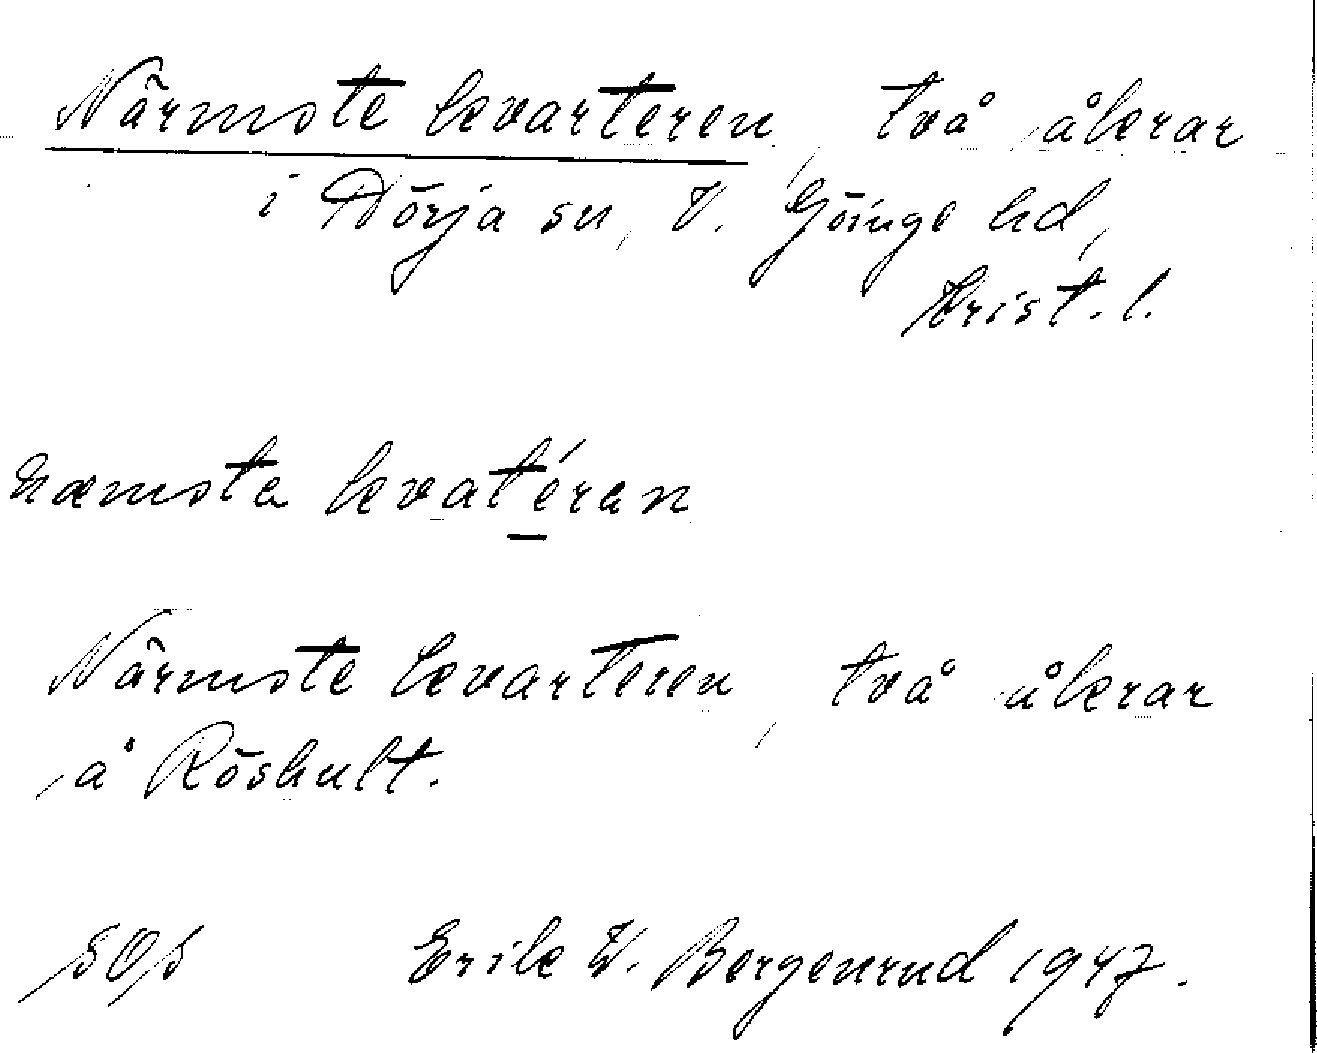 Närmste kvarteren, två åkrar
i Dörja sn, V. Göinge hd,
Krist. l.
næmsta kvatéran
Närmste kvarteren, två åkrar
å Röshult.
Erik W. Bergenrud 1947.